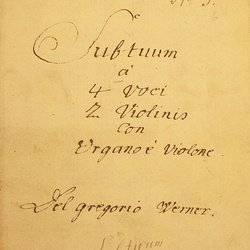 Nº 3.
Sub tuum
à
4 Voci
2 Violinis
Con
Organo è Violone
Del gregorio Werner.